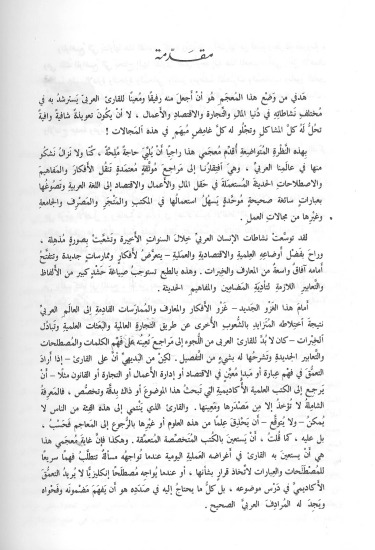 مقدّمة
هدَفي من وَضْع هذا المُعجَم هو أنْ أجعل منه رفيقًا ومُعينًا للقارئ العربيّ يَسترشد به في
مُختلِف نشاطاته في دُنيا المال والتجارة والاقتصاد والأعمال ، لا أنْ يكُونَ تعويذةً شافيةً وافيةً
تحُلّ لهُ كلَّ المشاكل وتجلُو له كلَّ غامِضٍ مُبهَمٍ في هذه المجالات !
بهذه النظْرة المُتواضِعة أقدّم مُعجَمي هذا راجيًا أنْ يُلبّيَ حاجةً مُلِحّة ، كُنّا ولا نزالُ نَشكُو
منها في عالَمِنا العربيّ ، وهي افتِقارُنا إلى مَراجعَ موثُوقةٍ مُعتمَدة تَنقُل الأفكارَ والمَفاهيمَ
والاصطلاحاتِ الحديثةَ المستعمَلة في حَقل المال والأعمال والاقتصاد إلى اللغة العربية وتَصُوغُها
بعبارات سائغة صحيحةٍ موحَّدةٍ يَسهُل استعمالُها في المكتب والمَتْجَر والمَصْرِف والجامعة
وغيرِها من مجالات العمل .
لقد توسَّعتْ نشاطات الإنسان العربيّ خلالَ السنوات الأخيرة وتَشعَّبتْ بصورةٍ مُذهِلة ،
وراح بفضل أوضاعِه العِلمية والاقتصادية والعملية – يتعرَّضُ لأفكارٍ وممارساتٍ جديدة وتتفتّحُ
أمامَه آفاقٌ واسعة من المعارف والخبرات . وهذه بالطبع تستوجب صياغةَ حَشْدٍ كبير من الألفاظ
والتعابير اللازمة لتأديةِ المَضامين والمفاهيم الحديثة .
أمامَ هذا الغَزو الجديد – غَزْوِ الأفكار والمعارف والمُمارسات القادمة إلى العالَم العربيّ
نتيجةَ اختلاطه المُتزايد بالشعوب الأخرى عن طريق التجارة العالمية والبعثات العلمية وتبادُل
الخِبرات – كان لا بُدَّ للقارئ العربي من اللجوء إلى مَراجعَ تُعينُه على فَهْم الكلمات والمصطلَحات
والتعابير الجديدة وتَشرحُها له بشيءٍ من التفصيل . لكنْ من البديهيّ أنّ على القارئ – إذا أراد
التعمّقَ في فَهْم عبارةٍ أو مَبدإٍ مُعيَّن في الاقتصاد أو إدارة الأعمال أو التجارة أو القانون مثلًا – أنْ
يَرجعَ إلى الكتب العلمية الأكاديمية التي تَبحثُ هذا الموضوعَ أو ذاك بدقّة وتخصُّص ، فالمَعرِفةُ
الشاملةُ لا تُؤخَذُ إلّا من مَصْدَرِها ومَعينِها . والقارئ الذي يَنتمي إلى هذه الفئة من الناس لا
يُمكنُ – ولا يُتوقَّع – أن يَحذِقَ عِلمًا من هذه العلوم أو غيرِها بالرجوع إلى المَعاجم فحسْب ،
بل عليه ، كما قُلتُ ، أنْ يَستعينَ بالكُتب المتخصّصة المُتعمّقة . وهكذا فإنّ غايةَ مُعجَمي هذا
هي أنْ يَستعينَ به القارئ في أغراضه العملية اليومية عندما تُواجهُه مسألةٌ تتطلّب فَهْمًا سريعًا
للمُصطلَحات والعبارات لاتّخاذ قرارٍ بشأنها ، أو عندما يُواجه مصطلَحًا إنكليزيًّا لا يُريدُ التعمّقَ
الأكاديميّ في دَرْس موضوعه ، بل كلُّ ما يحتاج إليه في صَدَدِه هو أن يَفهَمَ مَضمُونَه وفَحْواه
ويَجِدَ له المرادِفَ العربيّ الصحيح .